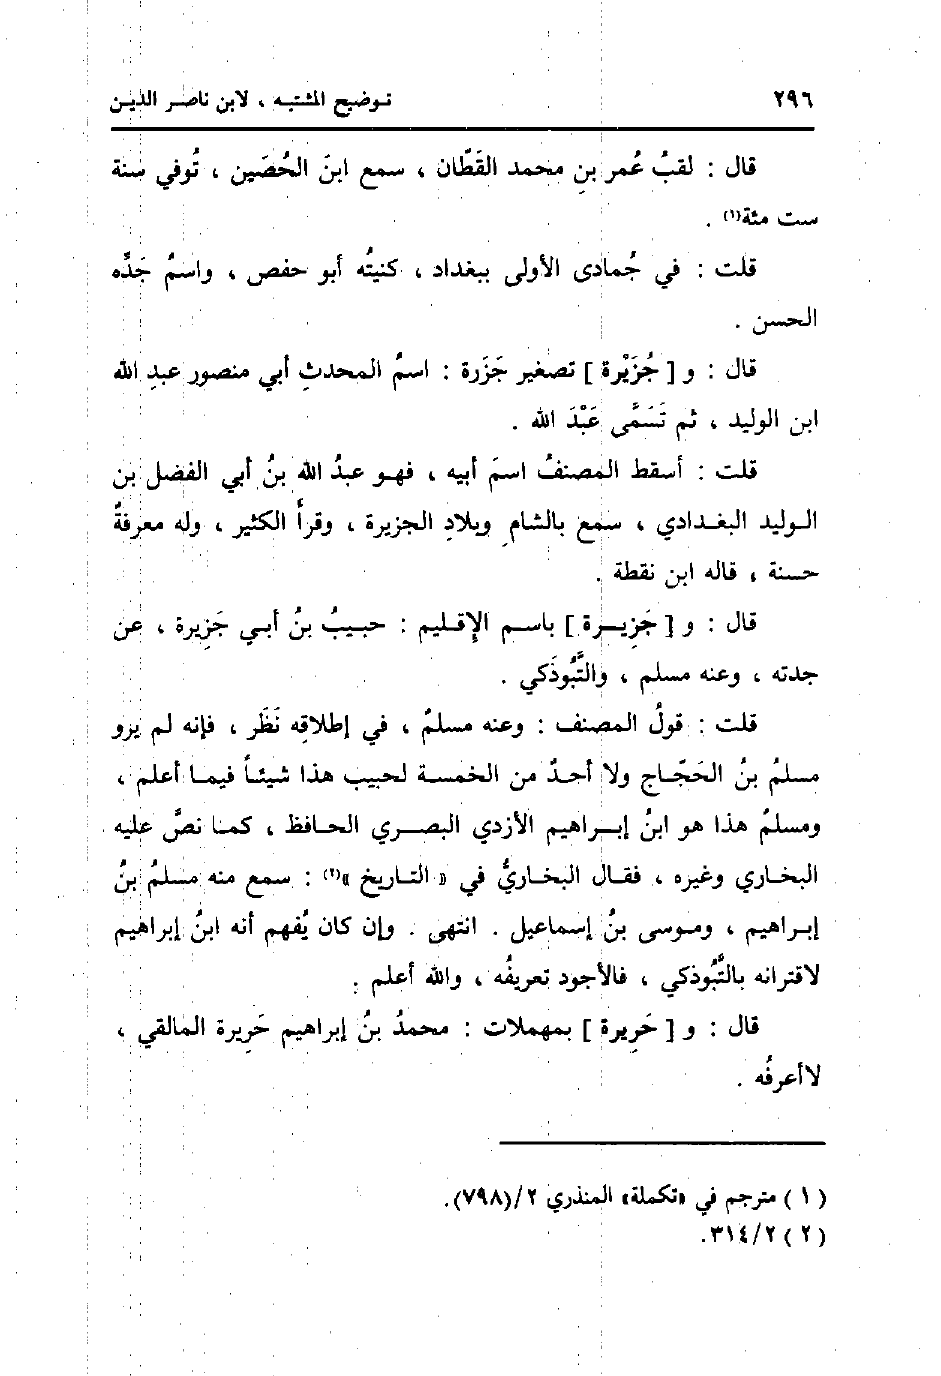 ٢٩٦
توضيح المشتبه ، لابن ناصر الدين
قال : لقبُ عُمر بنِ محمد القَطّان ، سمع ابنَ الحُصَين ، تُوفي سنة
ست مئة(١) .
قلت : في جُمادى الأولى ببغداد ، كنيتُه أبو حفص ، واسمُ جَدِّه
الحسن .
قال : و [ جُزَيْرة ] تصغير جَزَرة : اسمُ المحدثِ أبي منصور عبدِ الله
ابن الوليد ، ثم تَسَمَّى عَبْدَ الله .
قلت : أسقط المصنفُ اسمَ أبيه ، فهو عبدُ الله بنُ أبي الفضل بن
الوليد البغدادي ، سمع بالشام وبلادِ الجزيرة ، وقرأ الكثير ، وله معرفةٌ
حسنة ، قاله ابن نقطة .
قال : و [ جَزِيرة ] باسم الإقليم : حبيبُ بنُ أبي جَزِيرة ، عن
جدته ، وعنه مسلم ، والتَّبُوذَكي .
قلت : قولُ المصنف : وعنه مسلمٌ ، في إطلاقِه نَظَر ، فإنه لم يرو
مسلمُ بنُ الحَجّاج ولا أحدٌ من الخمسة لحبيب هذا شيئاً فيما أعلم ،
ومسلمُ هذا هو ابنُ إبراهيم الأزدي البصري الحافظ ، كما نصَّ عليه
البخاري وغيره ، فقال البخاريُّ في « التاريخ »(٢) : سمع منه مسلمُ بنُ
إبراهيم ، وموسى بنُ إسماعيل . انتهى . وإن كان يُفهم أنه ابنُ إبراهيم
لاقترانه بالتَّبُوذكي ، فالأجود تعريفُه ، والله أعلم .
قال : و [ حَرِيرة ] بمهملات : محمدُ بنُ إبراهيم حَرِيرة المالقي ،
لاأعرفُه .
( ١ ) مترجم في «تكملة» المنذري ٢/(٧٩٨).
( ٢ ) ٣١٤/٢.